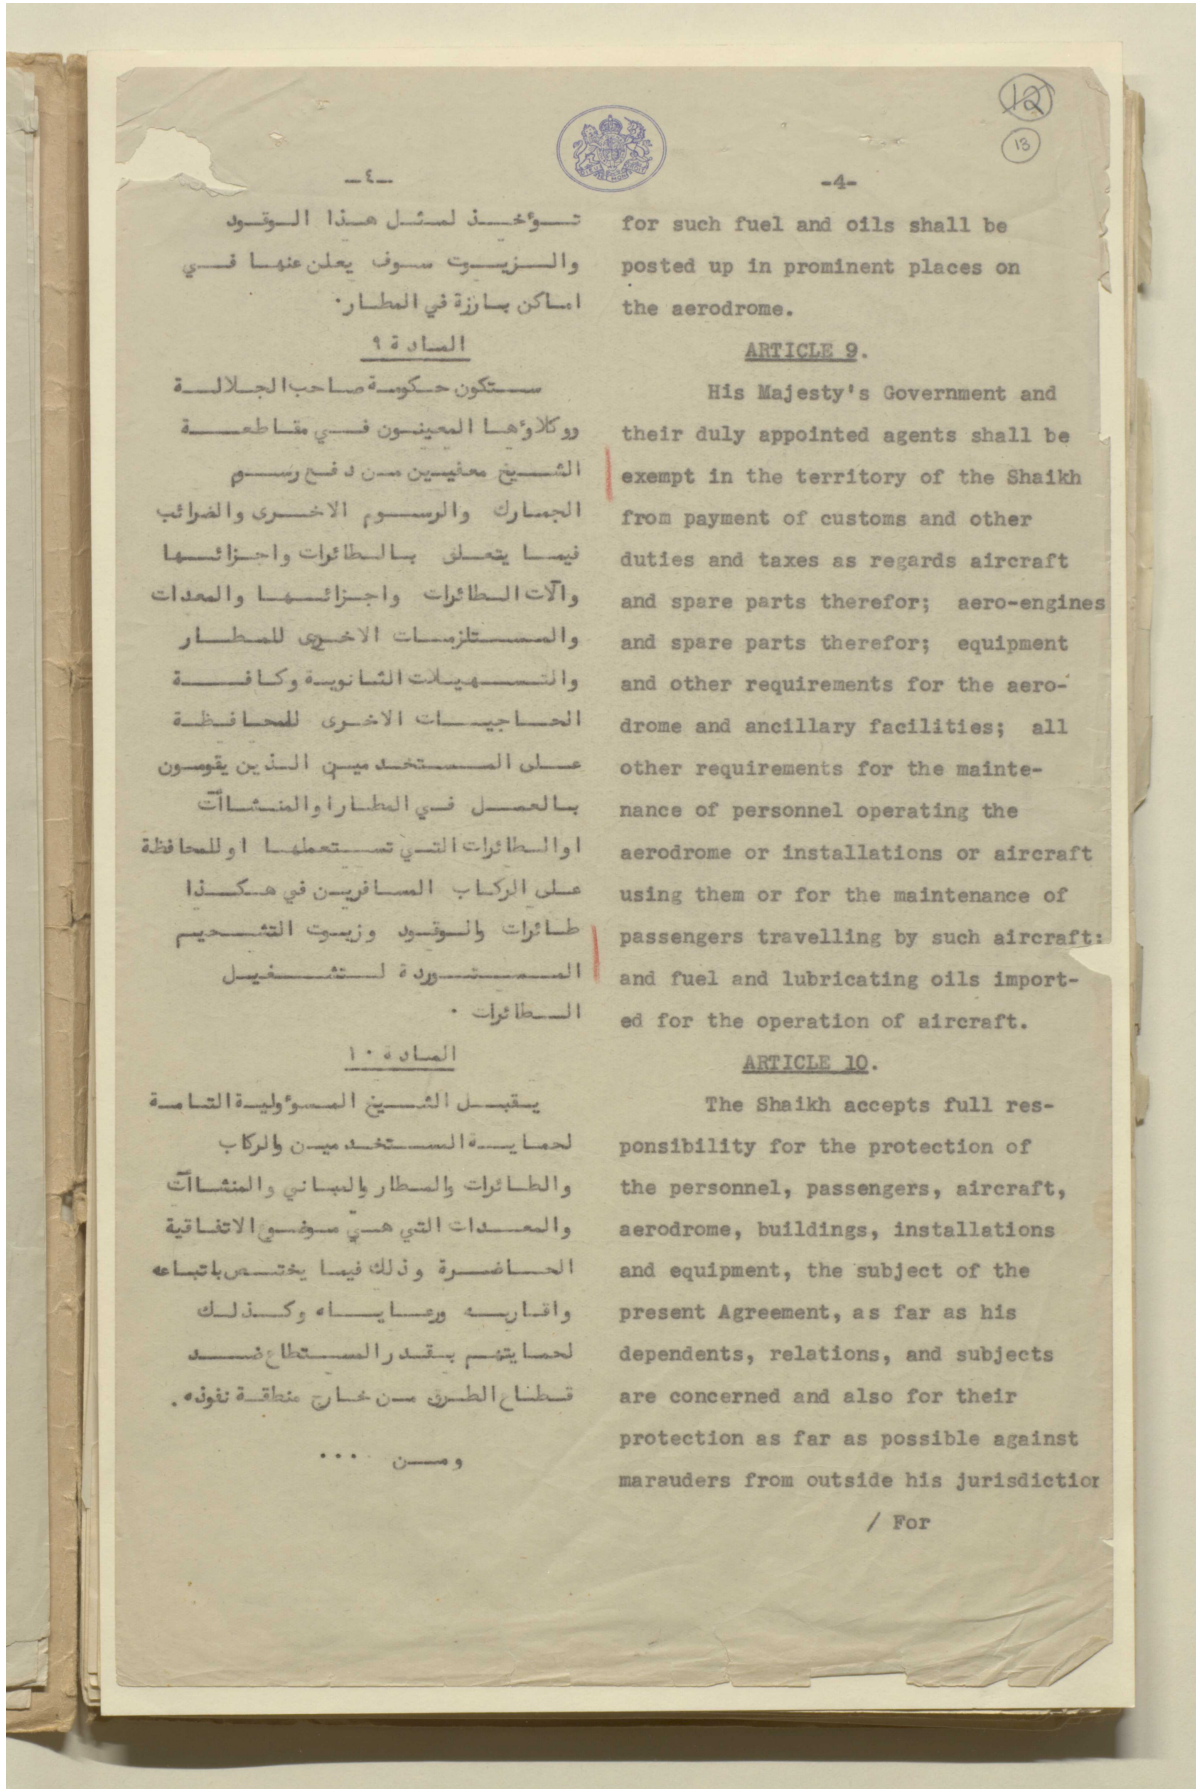 12
13
-٤-
تؤخذ لمثل هذا الوقود
والزيوت سوف يعلن عنها في
اماكن بارزة في المطار.
المادة ٩
ستكون حكومة صاحب الجلالة
ووكلاؤها المعينون في مقاطعة
الشيخ معفيين من دفع رسم
الجمارك والرسوم الاخرى والضرائب
فيما يتعلق بالطائرات واجزائها
وآلات الطائرات واجزائها والمعدات
والمستلزمات الاخرى للمطار
والتسهيلات الثانوية وكافة
الحاجيات الاخرى للمحافظة
على المستخدمين الذين يقومون
بالعمل في المطار او المنشاآت
او الطائرات التي تستعملها او للمحافظة
على الركاب المسافرين في هكذا
طائرات والوقود وزيوت التشحيم
المستوردة لتشغيل
الطائرات .
المادة ١٠
يقبل الشيخ المسوؤلية التامة
لحماية المستخدمين والركاب
والطائرات والمطار والمباني والمنشاآت
والمعدات التي هي موضوع الاتفاقية
الحاضرة وذلك فيما يختص باتباعه
واقاربه ورعاياه وكذلك
لحمايتهم بقدر المستطاع ضد
قطاع الطرق من خارج منطقة نفوذه .
ومن ...
-4-
for such fuel and oils shall be
posted up in prominent places on
the aerodrome.
ARTICLE 9.
His Majesty's Government and
their duly appointed agents shall be
exempt in the territory of the Shaikh
from payment of customs and other
duties and taxes as regards aircraft
and spare parts therefor; aero-engines
and spare parts therefor; equipment
and other requirements for the aero-
drome and ancillary facilities; all
other requirements for the mainte-
nance of personnel operating the
aerodrome or installations or aircraft
using them or for the maintenance of
passengers travelling by such aircraft:
and fuel and lubricating oils import-
ed for the operation of aircraft.
ARTICLE 10.
The Shaikh accepts full res-
ponsibility for the protection of
the personnel, passengers, aircraft,
aerodrome, buildings, installations
and equipment, the subject of the
present Agreement, as far as his
dependents, relations, and subjects
are concerned and also for their
protection as far as possible against
marauders from outside his jurisdiction
/ For